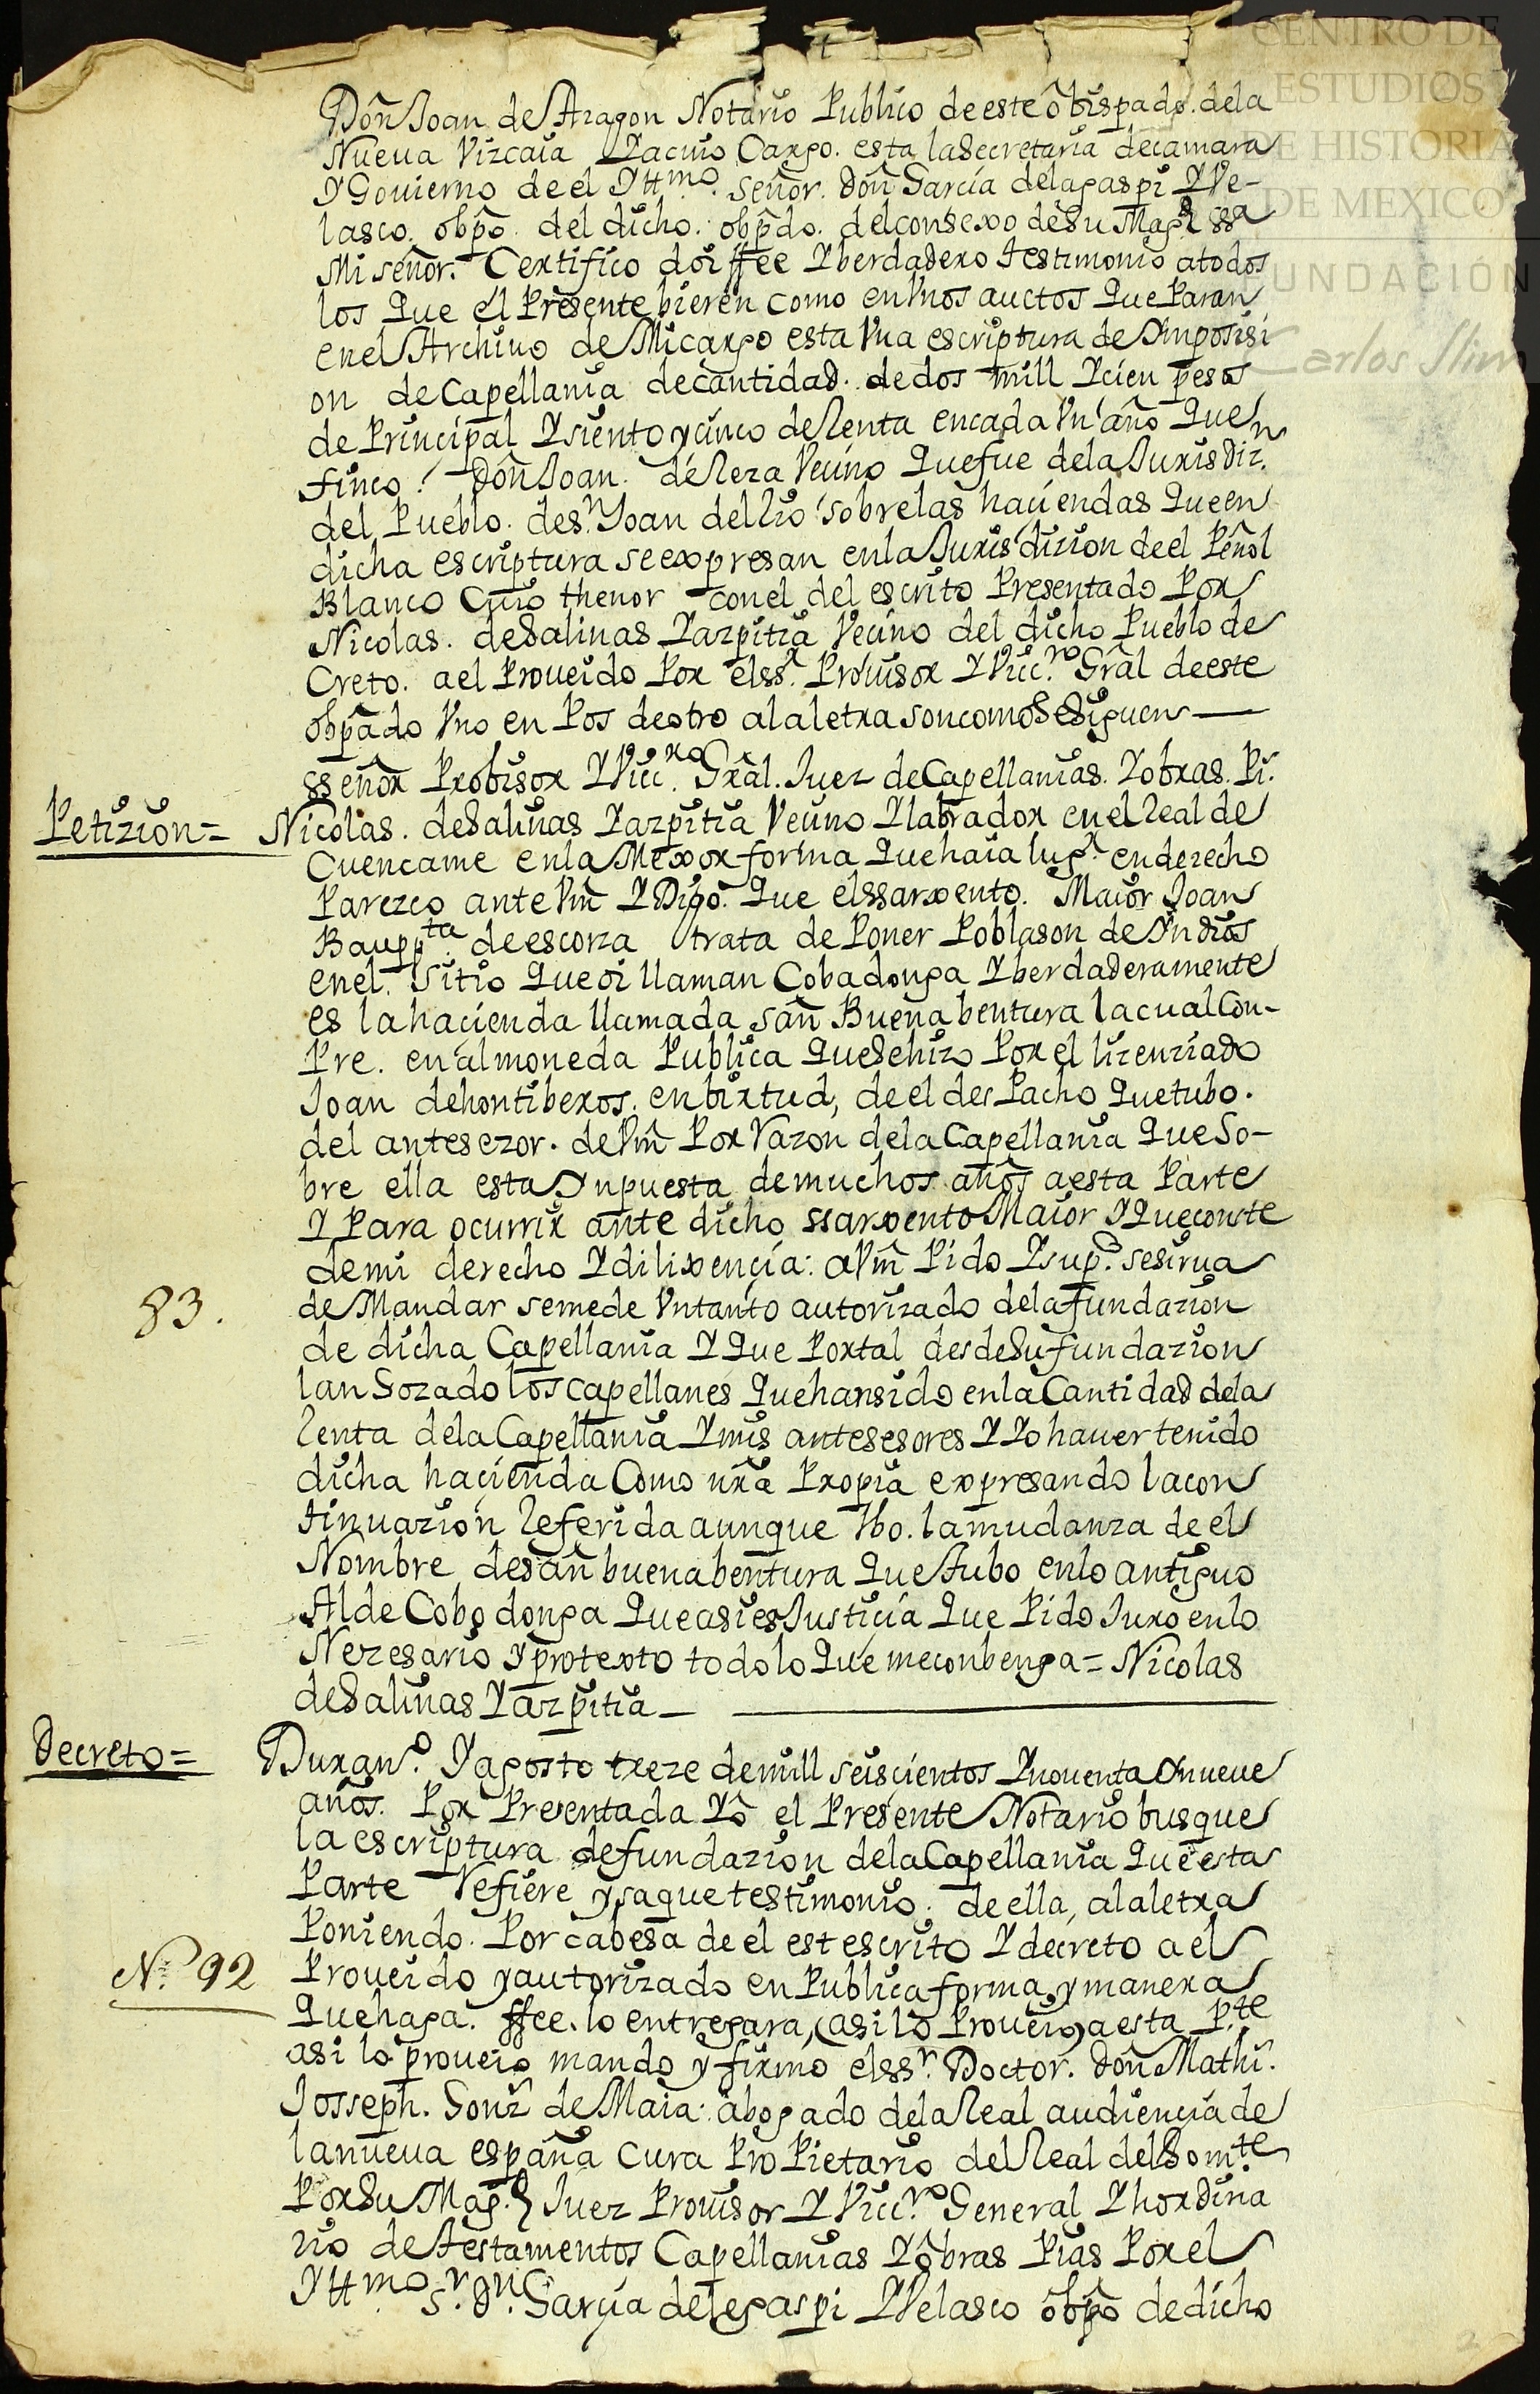 CENTRO DE
ESTUDIOS
DE HISTORIA
DE MEXICO
FUNDACIÓN
Carlos Slim
Don Joan de Aragon Notario Publico de este obispado. de la
Nueua Vizcaia Y a cuio Cargo. esta la Secretaria de camara
Y Gouierno de el Yttmo. señor. Don Garcia de lagaspi Y Ve-
lasco. obpo. del dicho. obpdo. del consexo de Su Magd
Mi señor. Certifico doi ffee Y berdadero testimonio a todos
los Que el Presente bieren como en Vnos auctos Que Paran
en el Archiuo de Mi cargo esta Vna escriptura de Ymposisi
on de Capellania de cantidad. de dos mill Y cien pesos
de Principal Y siento y cinco de Renta en cada Vn año Que
finco. Don Joan. de Neza Vecino Que fue de la Jurisdiz.n
del Pueblo. de S.n Joan del Rio sobre las haciendas Que en
dicha escriptura se expresan en la Jurisdizion de el Peñol
Blanco Cuio thenor con el del escrito Presentado Por
Nicolas. de Salinas Yazpitia Vecino del dicho Pueblo de
Creto. a el Proueido Por el ss.r Prouisor Y Vicc.ro Gral de este
obpado Vno en Pos de otro a la letra son como Se Siguen —
sseñor Probisor Y Vicc.ro Gral. Juez de Capellanias. Y obras. Pi.
Petizion=
Nicolas. de Salinas Yazpitia Vecino Y labrador en el Real de
Cuencame en la Mexor forma Que haia lug.r en derecho
Parezco ante Vm Y Digo. Que el ssarxento. Maior Joan
Baupp.ta de escorza trata de Poner Poblason de Yndios
en el. Sitio Que oi llaman Cobadonga Y berdaderamente
es la hacienda llamada San Buena bentura la cual Con-
Pre. en almoneda Publica Que Se hizo Por el lizenziado
Joan de hontiberos. en birtud, de el des Pacho Que tubo.
del antesezor. de Vm Por Razon de la Capellania Que So-
bre ella esta Ynpuesta de muchos años a esta Parte
Y Para ocurrir ante dicho ssarxento Maior Y Que conste
de mi derecho Y dilixencia: a Vm Pido Y sup.co se sirua
de Mandar se me de Vn tanto autorizado de la fundazion
83.
de dicha Capellania Y Que Por tal desde Su fundazion
lan Gozado los capellanes Que han sido en la Cantidad de la
Renta de la Capellania Y mis antesesores Y Yo hauer tenido
dicha hacienda Como nra Propia expresando la con
tinuazion Referida aunque Vbo. la mudanza de el
Nombre de san buena bentura Que tubo en lo antiguo
Al de Cobo donga Que asi es Justicia Que Pido Juro en lo
Nezesario y protexto todo lo Que me conbenga = Nicolas
de Salinas Yazpitia —
Decreto=
Duran.o Y agosto treze de mill seiscientos Y nouenta Y nueue
años. Por Presentada Yo el Presente Notario busque
la escriptura de fundazion de la Capellania Que esta
Parte Refiere y saque testimonio. de ella, a la letra
Poniendo. Por cabesa de el est escrito Y decreto a el
Nº 92
Proueido y autorizado en Publica forma, y manera
Que haga. ffee. lo entregara, (asi lo Proueio) a esta P.te
asi lo proueio mando y firmo el ss.r Doctor. Don Mathi.
Josseph. Gonz de Maia: abogado de la Real audiencia de
la nueua españa Cura Pro Pietario del Real del Som.te
Por Su Mag.d Juez Prouisor Y Vicc.ro General Y hordina
rio de testamentos Capellanias Y obras Pias Por el
Yttmo. S.r Dn. Garçia de legaspi Y Velasco obpo de dicho